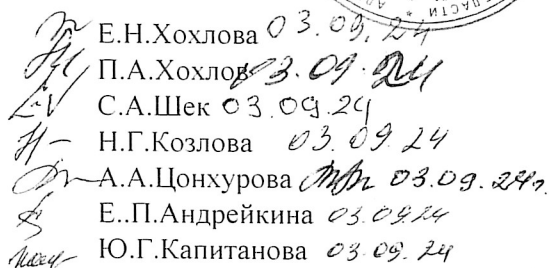 Е.Н.Хохлова 03.09.24
П.А.Хохлов 03.09.24
С.А.Шек 03.09.24
Н.Г.Козлова 03.09.24
А.А.Цонхурова 03.09.24г.
Е..П.Андрейкина 03.09.24
Ю.Г.Капитанова 03.09.24